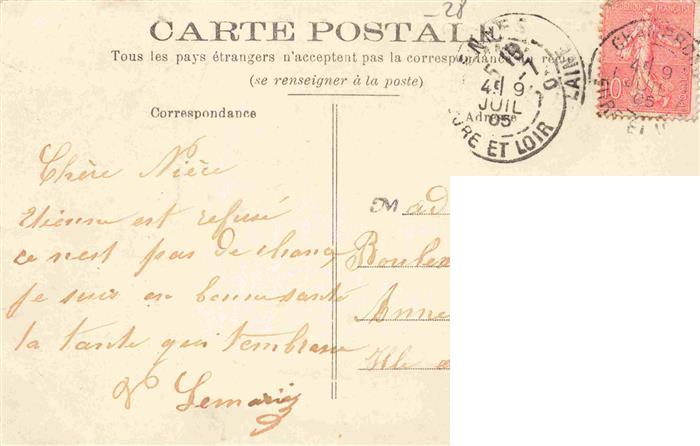 28
CARTE POSTALE
Tous les pays étrangers n'acceptent pas la correspondance au recto
(se renseigner à la poste)
Correspondance
Adresse
4 9
JUIL
05
EURE ET LOIR
4 9
JUIL
05
10
Chère Nièce
Etienne est refusé
ce n'est pas de chance
je suis en bonne santé
la tante qui t'embrasse
Lemarié
Mad
Boule
Anne
Ille